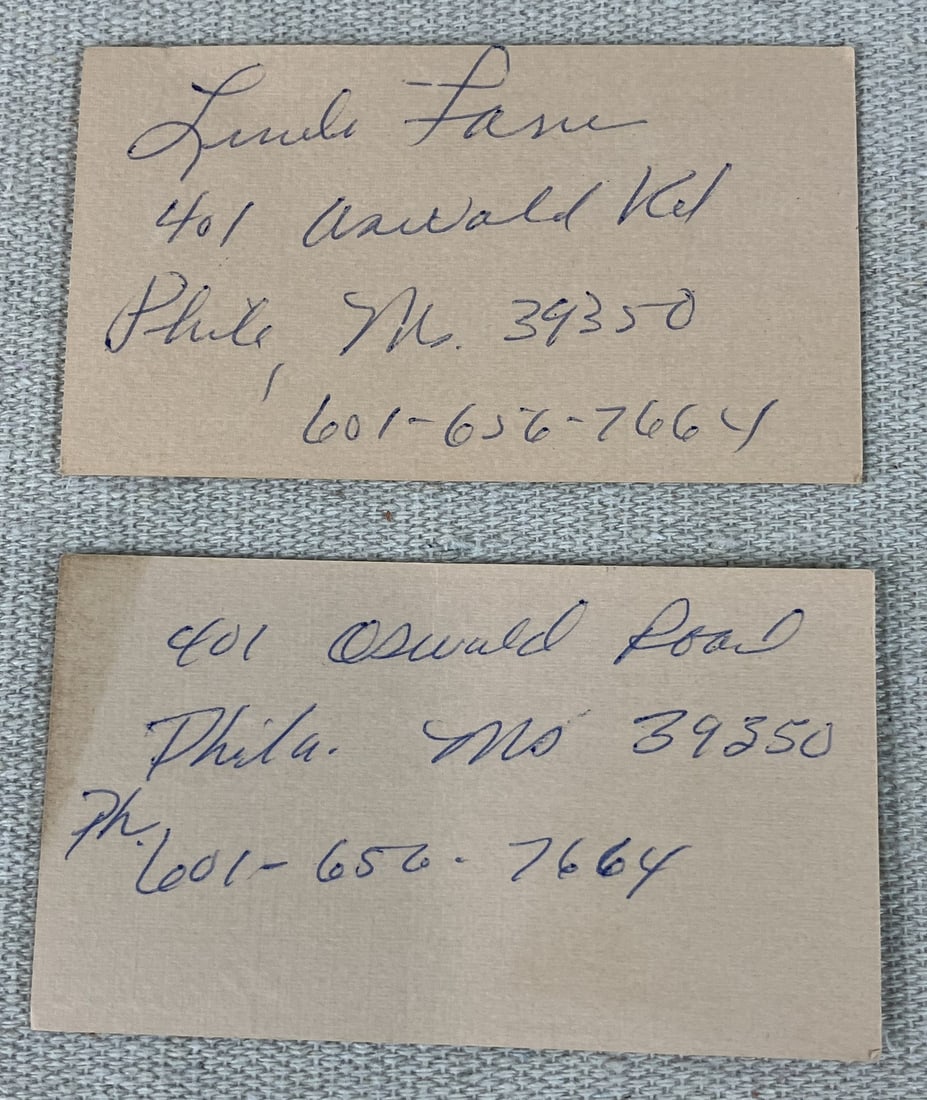 Linda
401 Oswald Rd
Phila, Ms. 39350
601-656-7664
401 Oswald Road
Phila. Ms 39350
Ph.
601-656-7664